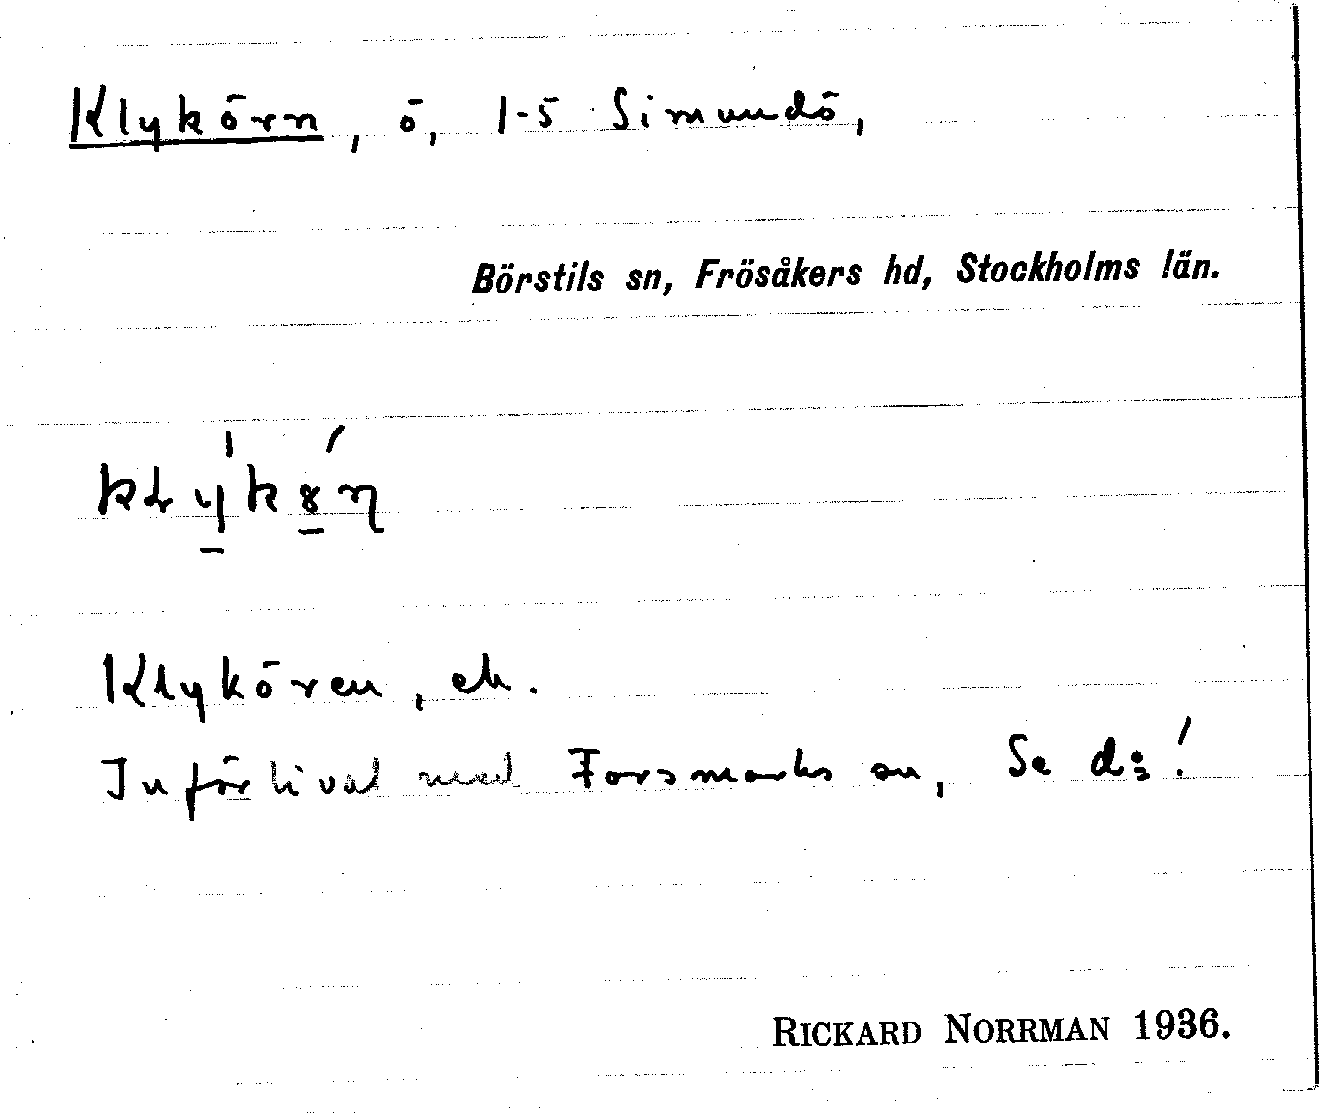 Klykörn, ö, 1-5 Simundö,
Börstils sn, Frösåkers hd, Stockholms län.
Klykören, ek.
Införlivad med Forsmarks sn, Se d:o!
RICKARD NORRMAN 1936.